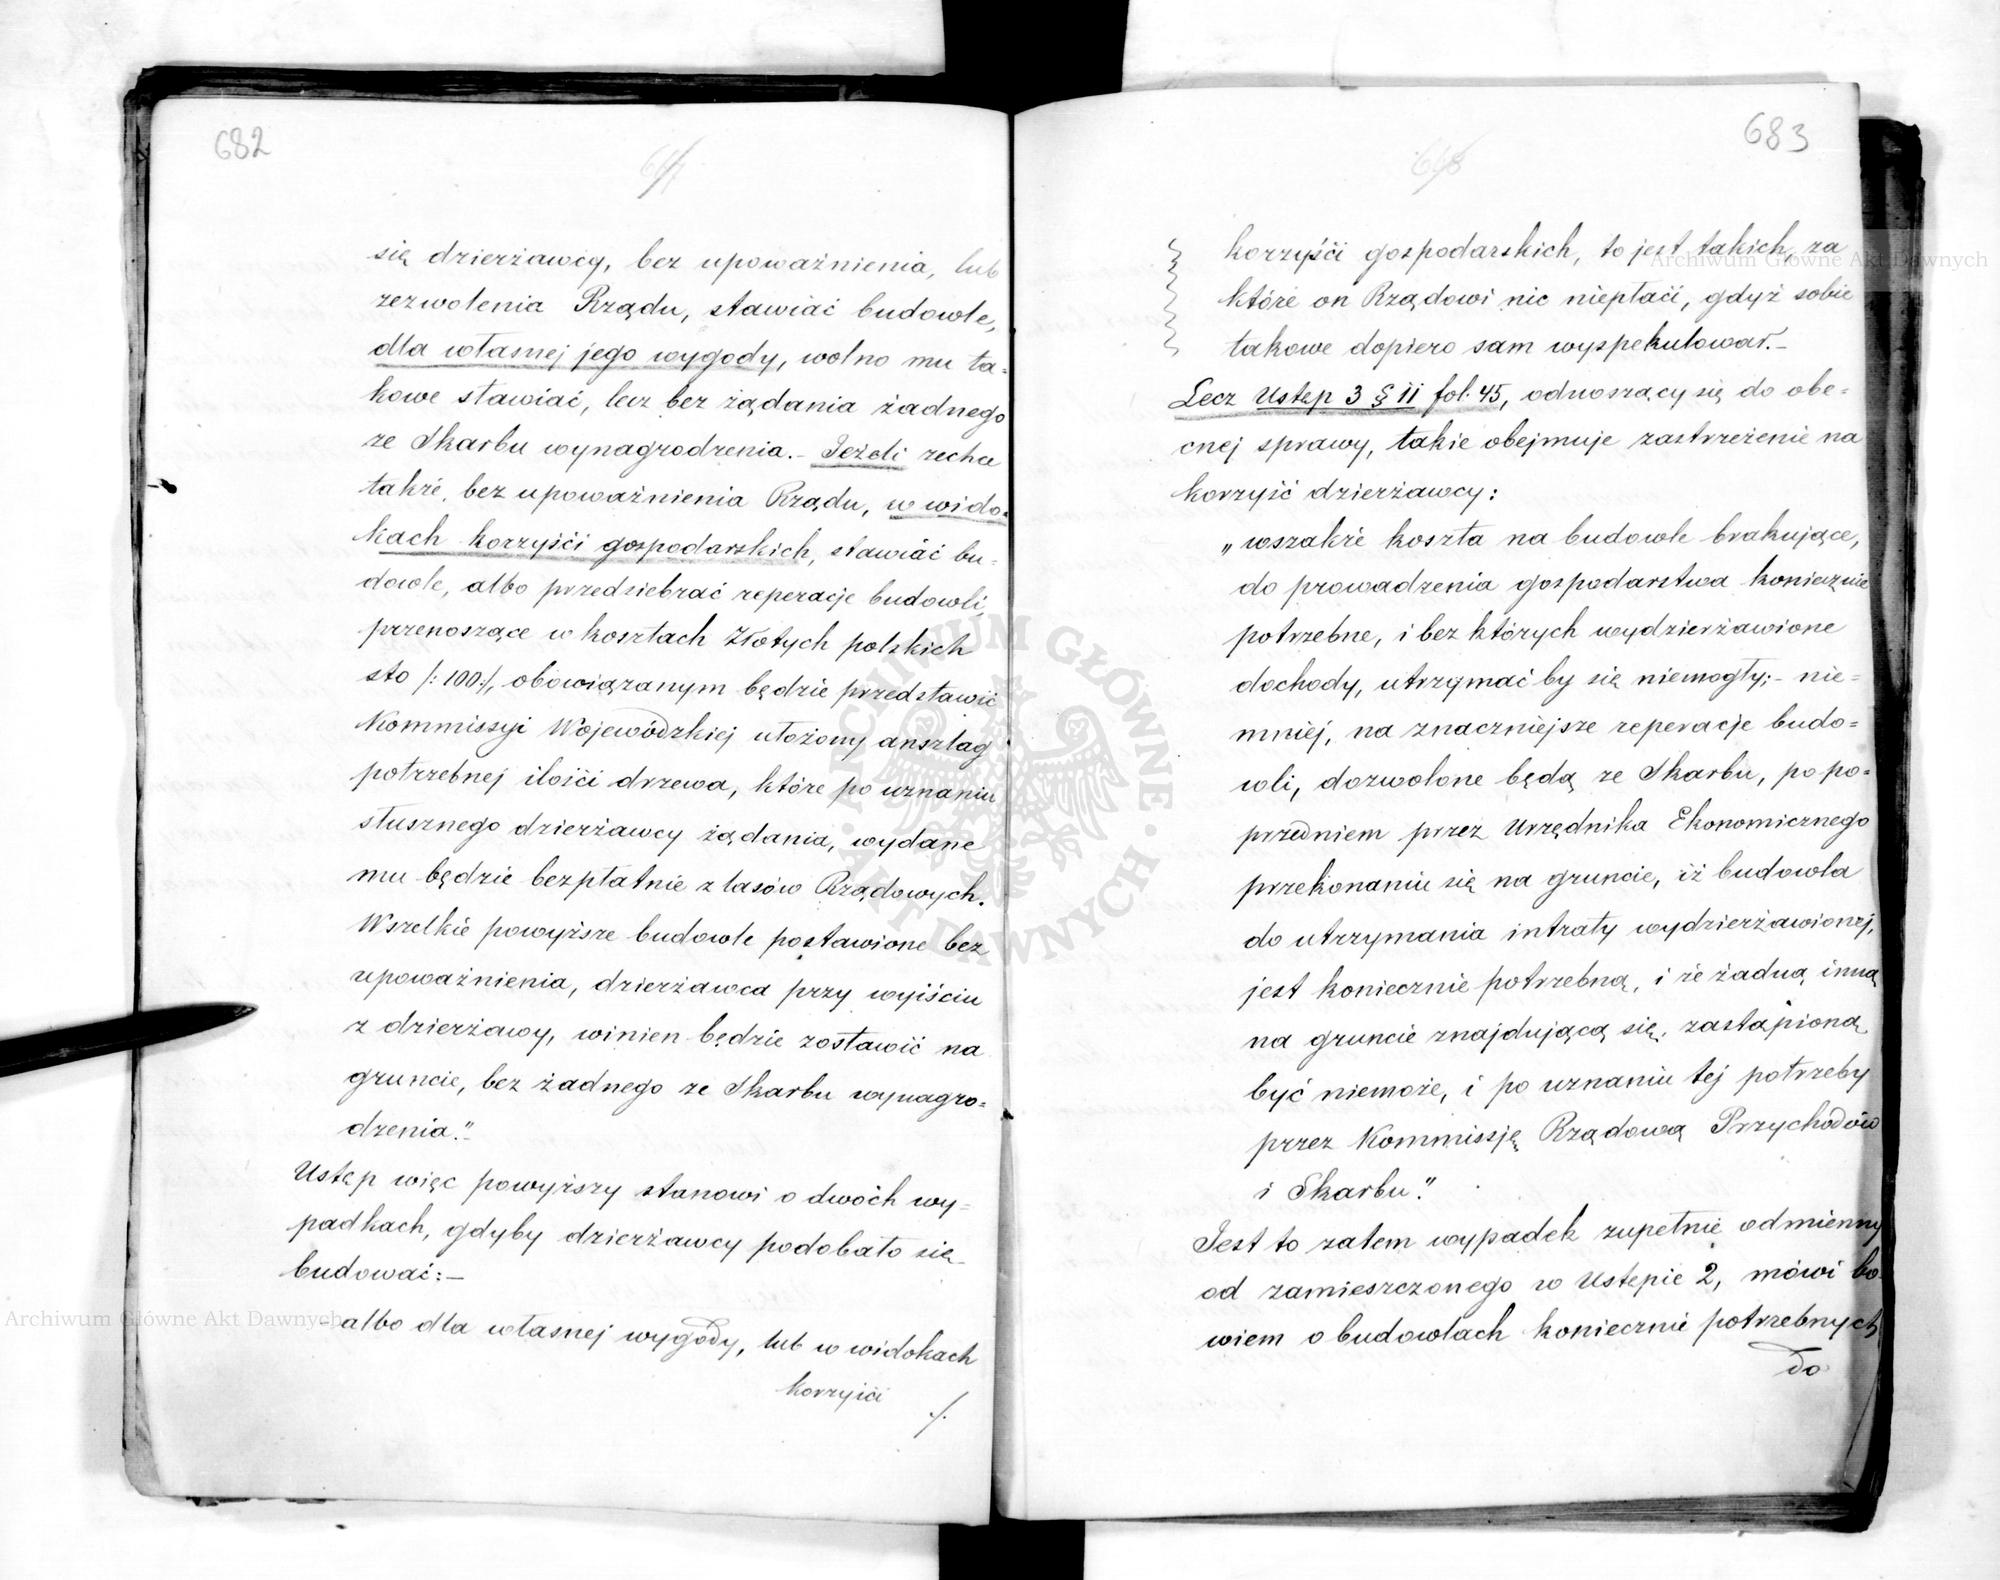 682
się dzierżawcy, bez upoważnienia, lub
zezwolenia Rządu, stawiać budowle,
dla własnej jego wygody, wolno mu ta=
kowe stawiać, lecz bez żądania żadnego
ze Skarbu wynagrodzenia.- Jeżeli zechce
także, bez upoważnienia Rządu, w wido=
kach korzyści gospodarskich, stawiać bu=
dowle, albo przedsiebrać reperacje budowli
przenoszące w kosztach Złotych polskich
sto /:100:/, obowiązanym będzie przedstawić
Kommissyi Wojewódzkiej ułożony ansztag
potrzebnej ilości drzewa, które po uznaniu
słusznego dzierżawcy żądania, wydane
mu będzie bezpłatnie z lasów Rządowych.
Wszelkie powyższe budowle postawione bez
upoważnienia, dzierżawca przy wyjściu
z dzierżawy, winien będzie zostawić na
gruncie, bez żadnego ze Skarbu wynagro=
dzenia."-
Ustęp więc powyższy stanowi o dwóch wy=
padkach, gdyby dzierżawcy podobało się
budować:-
albo dla własnej wygody, lub w widokach
korzyści
./.
683
korzyści gospodarskich, to jest takich, za
które on Rządowi nic niepłaci, gdyż sobie
takowe dopiero sam wyspekulował.-
Lecz Ustęp 3 § 11 fol. 45, odnoszący się do obe=
cnej sprawy, takie obejmuje zastrzeżenie na
korzyść dzierżawcy:
„wszakże koszta na budowle brakujące,
do prowadzenia gospodarstwa koniecznie
potrzebne, i bez których wydzierżawione
dochody, utrzymać by się niemogły;- nie=
mniej, na znaczniejsze reperacje budo=
wli, dozwolone będą ze Skarbu, po po=
przedniem przez Urzędnika Ekonomicznego
przekonaniu się na gruncie, iż budowla
do utrzymania intraty wydzierżawionej,
jest koniecznie potrzebną, i że żadną inną
na gruncie znajdującą się, zastąpioną
być niemoże, i po uznaniu tej potrzeby
przez Kommissję Rządową Przychodów
i Skarbu."
Jest to zatem wypadek zupełnie odmienny
od zamieszczonego w Ustępie 2, mówi bo=
wiem o budowlach koniecznie potrzebnych
do
Archiwum Główne Akt Dawnych
Archiwum Główne Akt Dawnych
· ARCHIWUM GŁÓWNE · AKT DAWNYCH